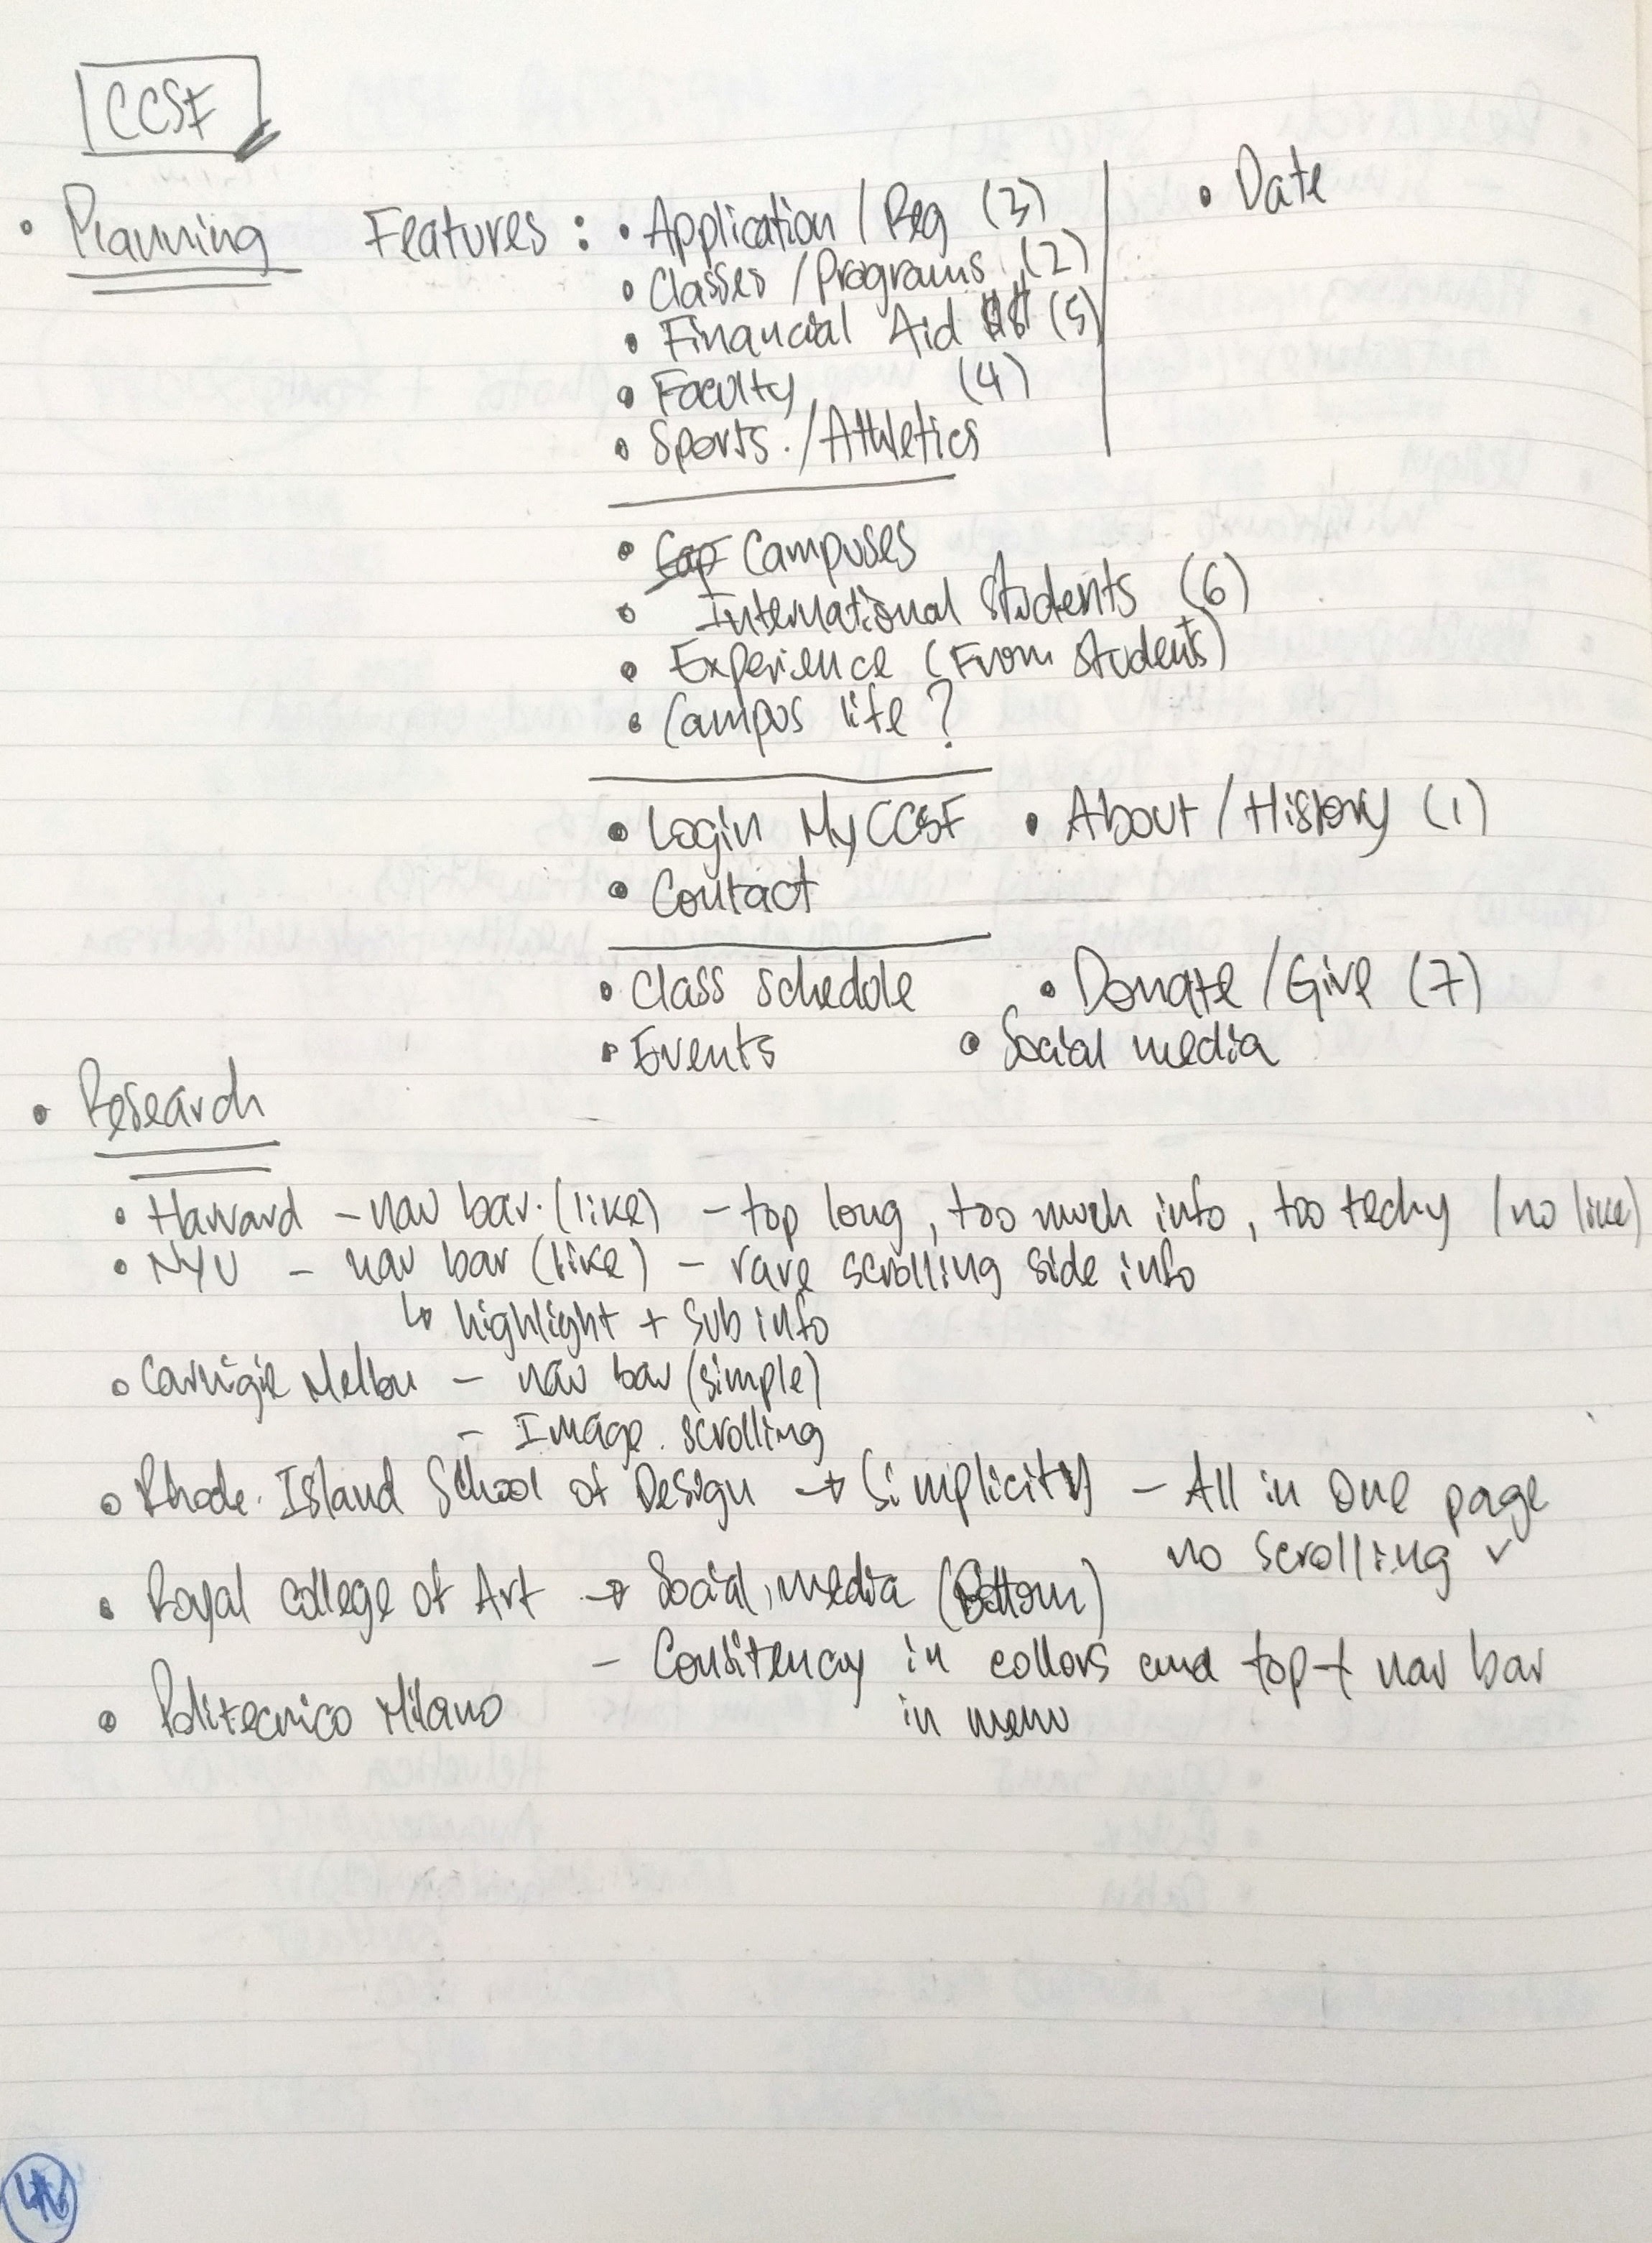 CCSF
• Planning Features : • Application / Reg (3) • Date
• Classes / Programs (2)
• Financial Aid (5)
• Faculty (4)
• Sports / Athletics
• Cap Campuses
• International Students (6)
• Experience (From students)
• Campus life ?
• Login MyCCSF • About / History (1)
• Contact
• Class schedule • Donate / Give (7)
• Events • Social media
• Research
• Harvard - nav bar (like) - top long, too much info, too techy (no like)
• NYU - nav bar (like) - rare scrolling side info
↳ highlight + Sub info
• Carnigie Mellon - nav bar (simple)
- Image scrolling
• Rhode Island School of Design → Simplicity - All in One page
no scrolling ✓
• Royal College of Art → Social media (Bottom)
- Consitency in collors and top + nav bar
in menu
• Politecnico Milano